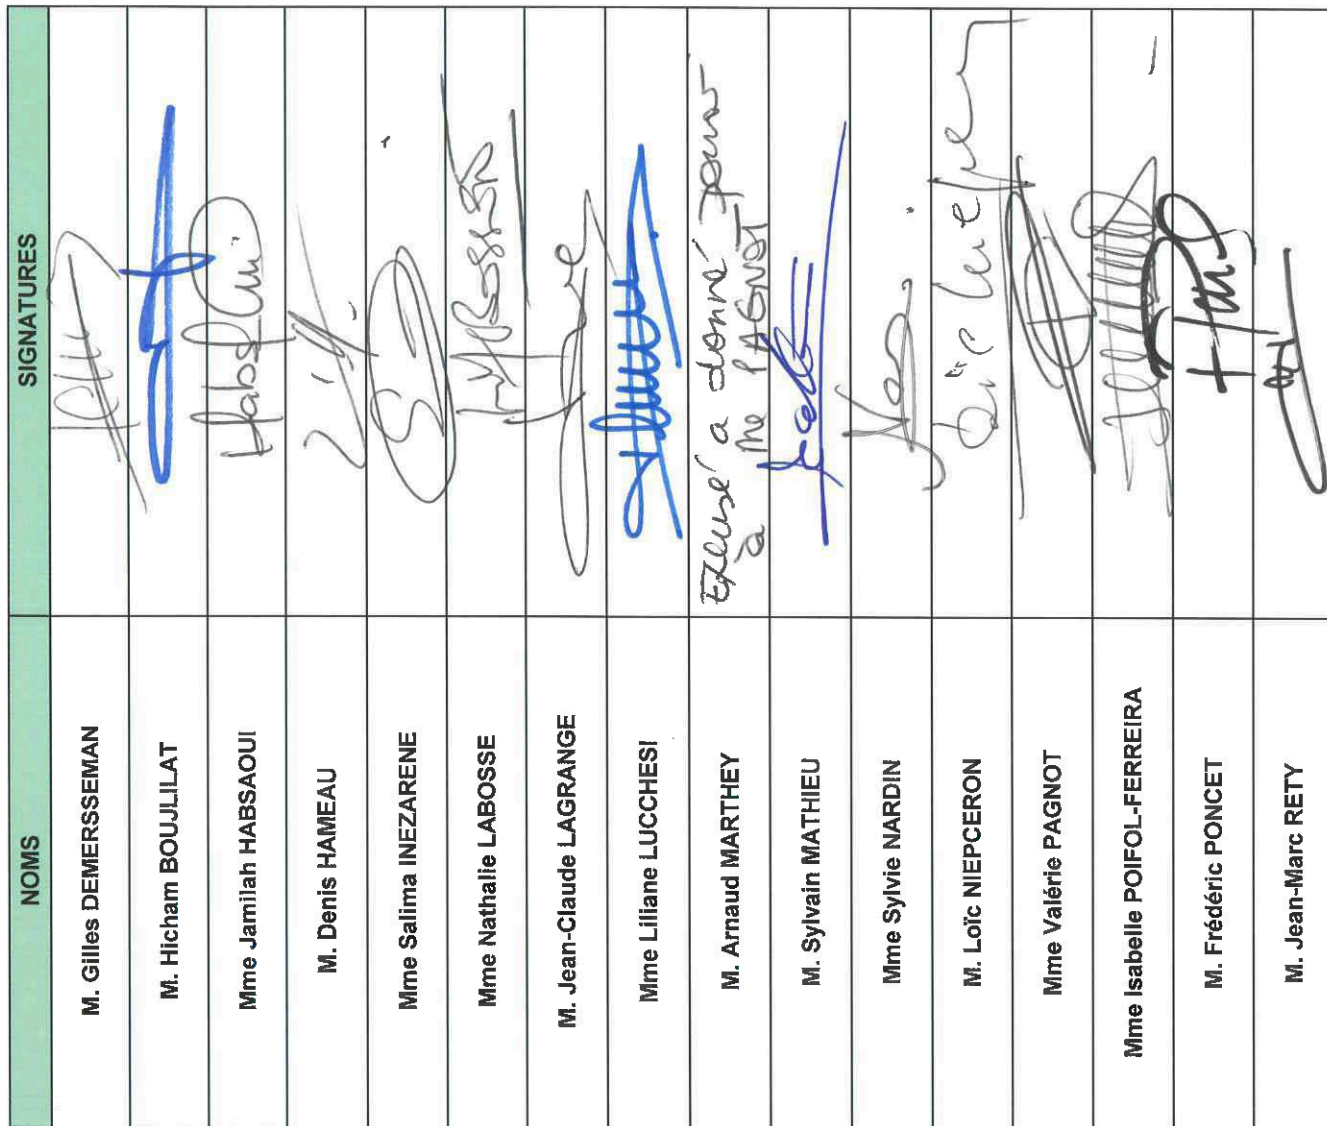 NOMS SIGNATURES
M. Gilles DEMERSSEMAN
M. Hicham BOUJLILAT
Mme Jamilah HABSAOUI
M. Denis HAMEAU
Mme Salima INEZARENE
Mme Nathalie LABOSSE
M. Jean-Claude LAGRANGE
Mme Liliane LUCCHESI
M. Arnaud MARTHEY Excusé a donné pouvoir
à Me PAGNOT
M. Sylvain MATHIEU
Mme Sylvie NARDIN
M. Loïc NIEPCERON
Mme Valérie PAGNOT
Mme Isabelle POIFOL-FERREIRA
M. Frédéric PONCET
M. Jean-Marc RETY